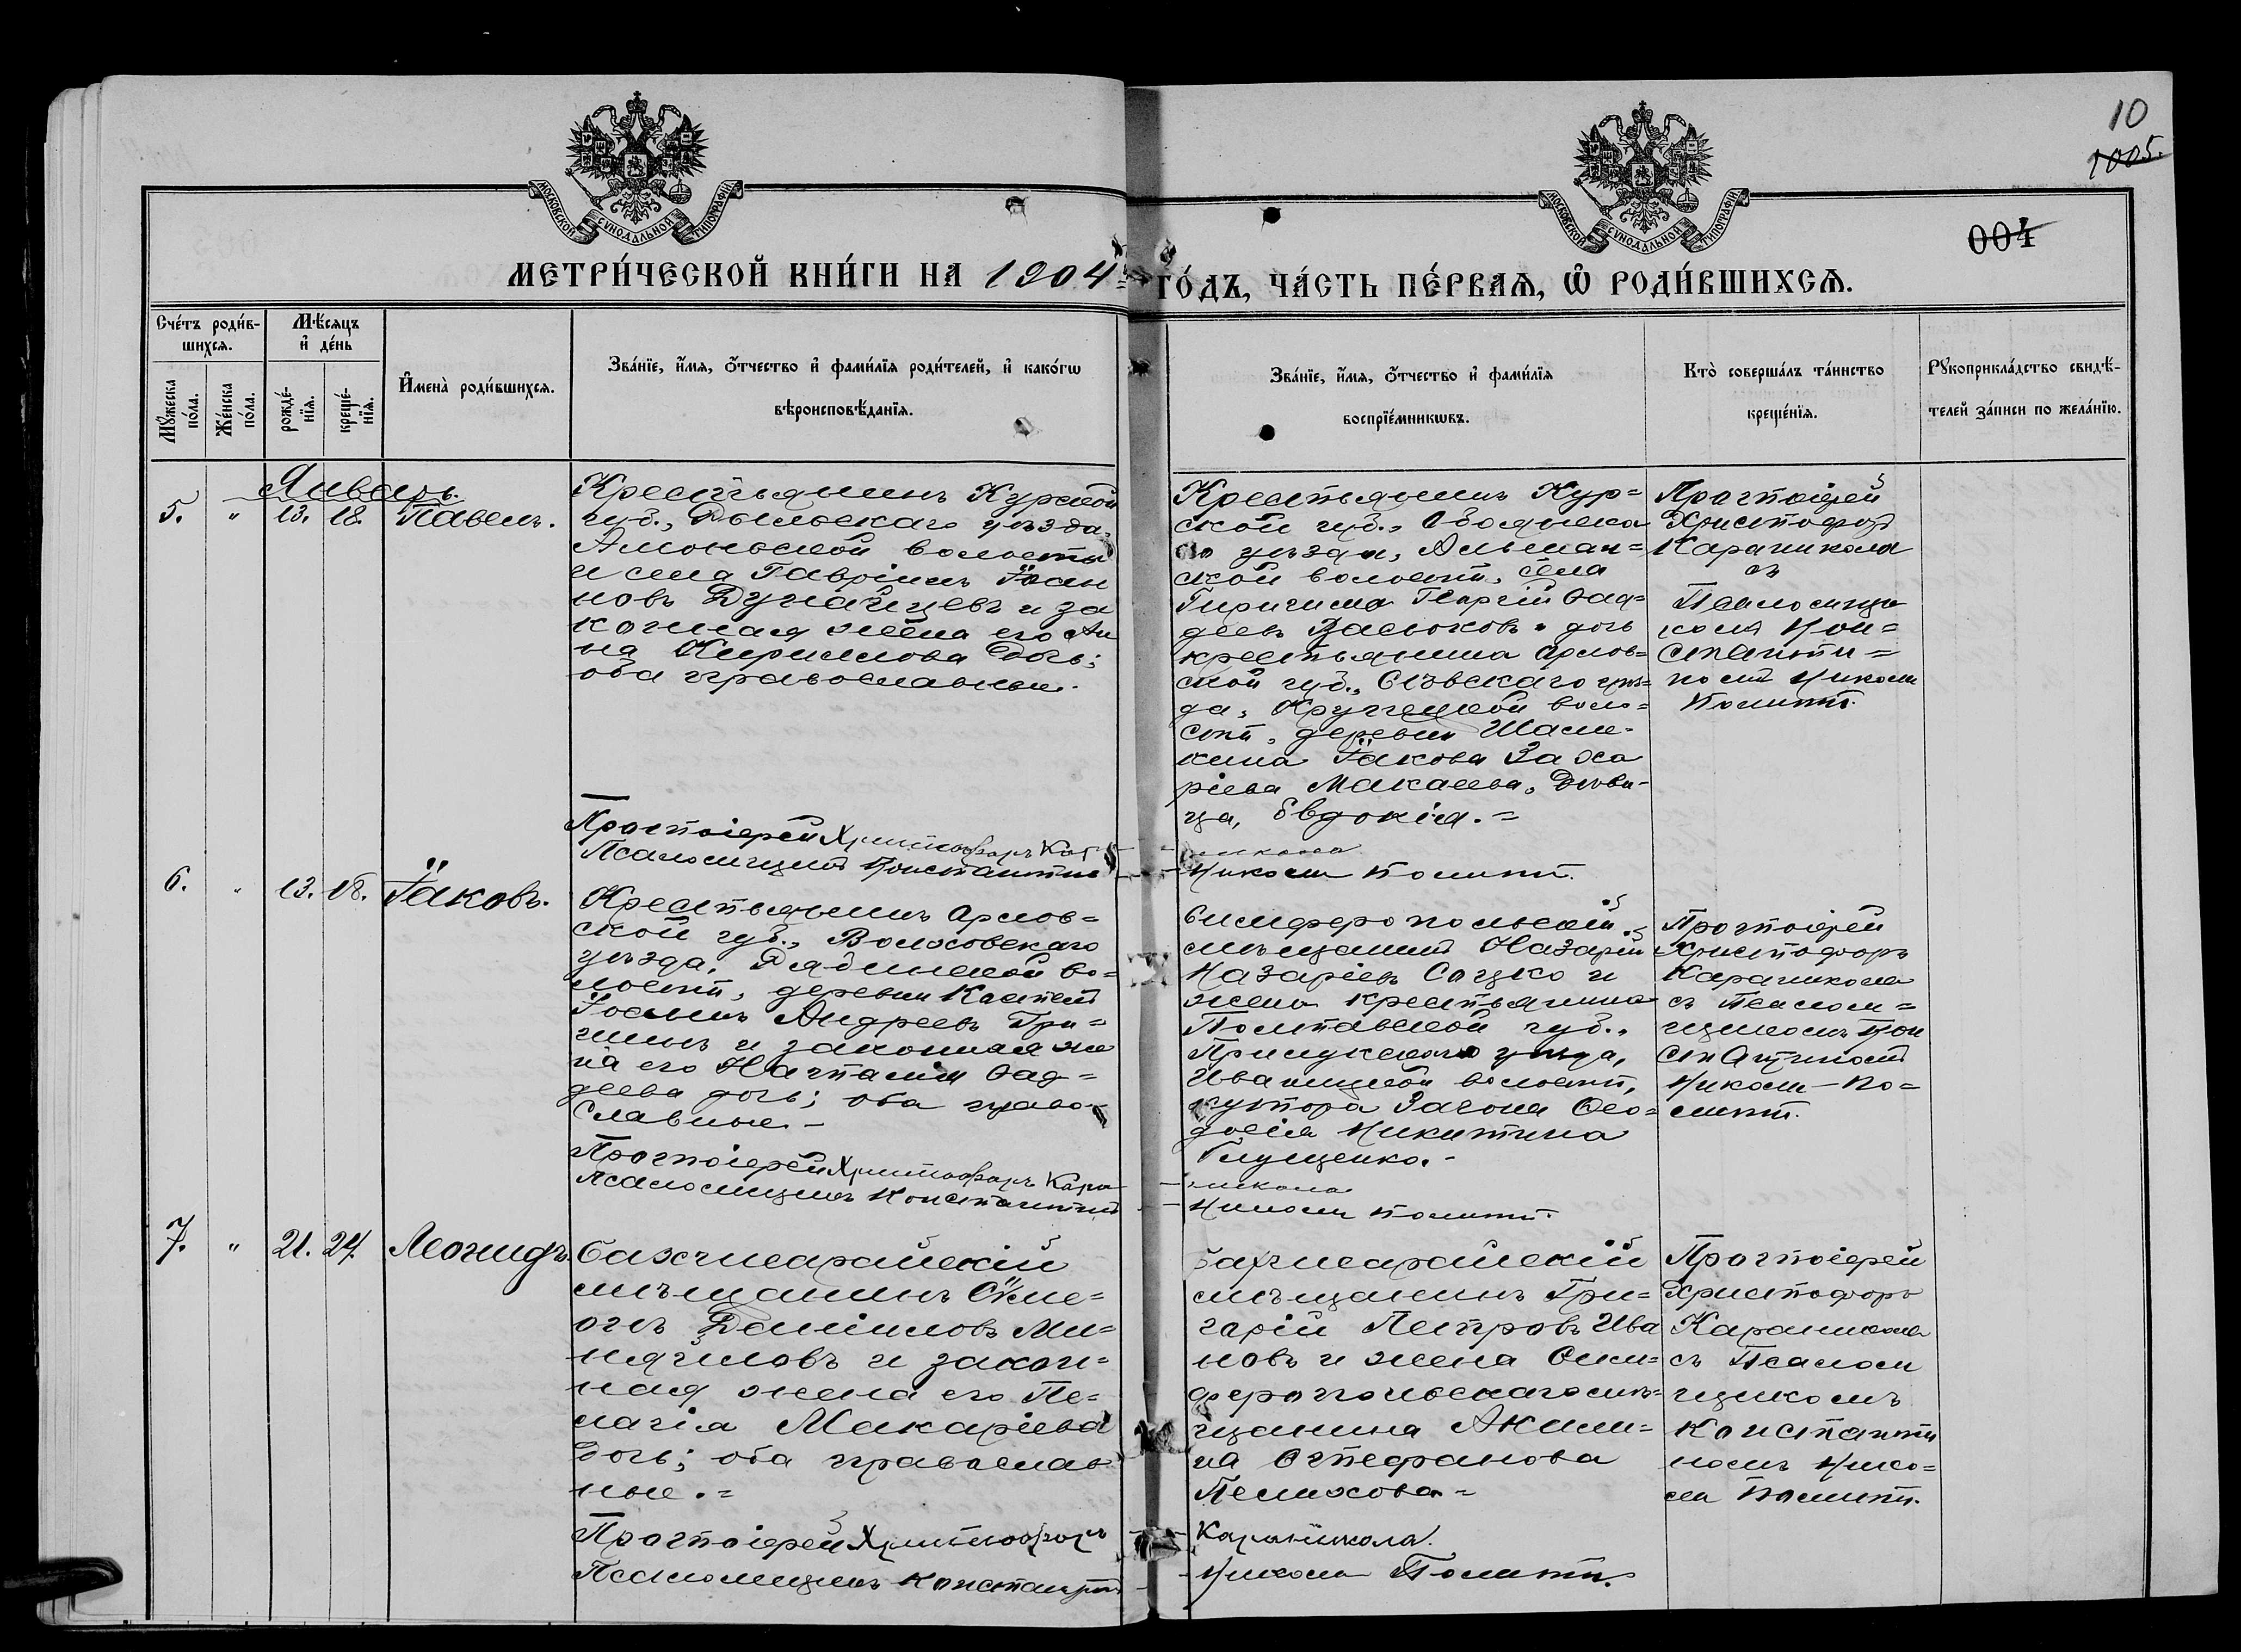 10
1005.
004
МОСКОВСКОЙ СУНОДАЛЬНОЙ ТИПОГРАФІИ
МОСКОВСКОЙ СУНОДАЛЬНОЙ ТИПОГРАФІИ
МЕТРИ́ЧЕСКОЙ КНИ́ГИ НА 1904 ГО́ДЪ, ЧА́СТЬ ПЕ́РВАѦ, Ѡ҆ РОДИ́ВШИХСѦ.
Сче́тъ роди́в-
шихсѧ.
Мꙋ́жеска по́ла.
Же́нска по́ла.
Мѣ́сѧцъ
и҆ де́нь
рожде́-
нїѧ.
креще́-
нїѧ.
И҆мена̀ роди́вшихсѧ.
Зва́нїе, и҆́мѧ, ѻ҆́тчество и҆ фами́лїѧ роди́телей, и҆ како́гѡ
вѣроисповѣ́данїѧ.
Зва́нїе, и҆́мѧ, ѻ҆́тчество и҆ фами́лїѧ
воспрїе́мникѡвъ.
Кто̀ соверша́лъ та́инство
креще́нїѧ.
Рꙋкоприкла́дство свидѣ́-
телей за́писи по жела́нїю.
Январь.
5. " 13. 18. Павелъ.
Крестьянинъ Курской
губ., Рыльскаго уѣзда,
Амоньской волости
и села Гавріилъ Іоан
новъ Дунайцевъ и за
конная жена его Ан
на Кириллова дочь;
оба православные.
Крестьянинъ Кур=
ской губ., Обоянска
го уѣзда,
ской волости, села
Георгій Ѳад=
деевъ и дочь
крестьянина Орлов=
ской губ., Сѣвскаго уѣз=
да, воло=
сти, деревни
кина Іакова Заха
ріева Макаева, дѣви-
ца, Евдокія.=
Протоіерей
Христофоръ
Караникола
съ
Псаломщи
комъ Кон=
станти=
номъ Николи
Политт.
Протоіерей Христофоръ Кара-
-никола
Псаломщикъ Константинъ
Николи Политт.
6. " 13. 18. Іаковъ.
Крестьянинъ Орлов=
ской губ., Волховскаго
уѣзда, во=
лости, деревни
Іосифъ Андреевъ Гри=
шинъ и законная же
на его Наталія Ѳад=
деева дочь; оба право-
славные.-
Симферопольскій
мѣщанинъ Назарій
Назаріевъ Соцко и
жена крестьянина
Полтавской губ.,
Прилукскаго уѣзда,
Иваницкой волости,
хутора Загона Ѳео=
досія Никитина
Глущенко.-
Протоіерей
Христофоръ
Караникола
съ Псалом=
щикомъ Кон
стантиномъ
Николи-По=
литт.
Протоіерей Христофоръ Кара-
-никола
Псаломщикъ Константинъ
Николи Политт.
7. " 21. 24. Леонидъ.
Бахчисарайскій
мѣщанинъ Сѵме=
онъ Даніиловъ Ми=
няиловъ и закон=
ная жена его Пе=
лагія Макаріева
дочь; оба православ
ные.=
Бахчисарайскій
мѣщанинъ Гри=
горій Петровъ Ива
новъ и жена Сим=
феропольскаго мѣ=
щанина Акили=
на Стефанова
Пелихова.=
Протоіерей
Христофоръ
Караникола
съ Псалом
щикомъ
Константи
номъ Нико=
ли Политт.
Протоіерей Христофоръ
Караникола.
Псаломщикъ Константинъ
Николи Политт.